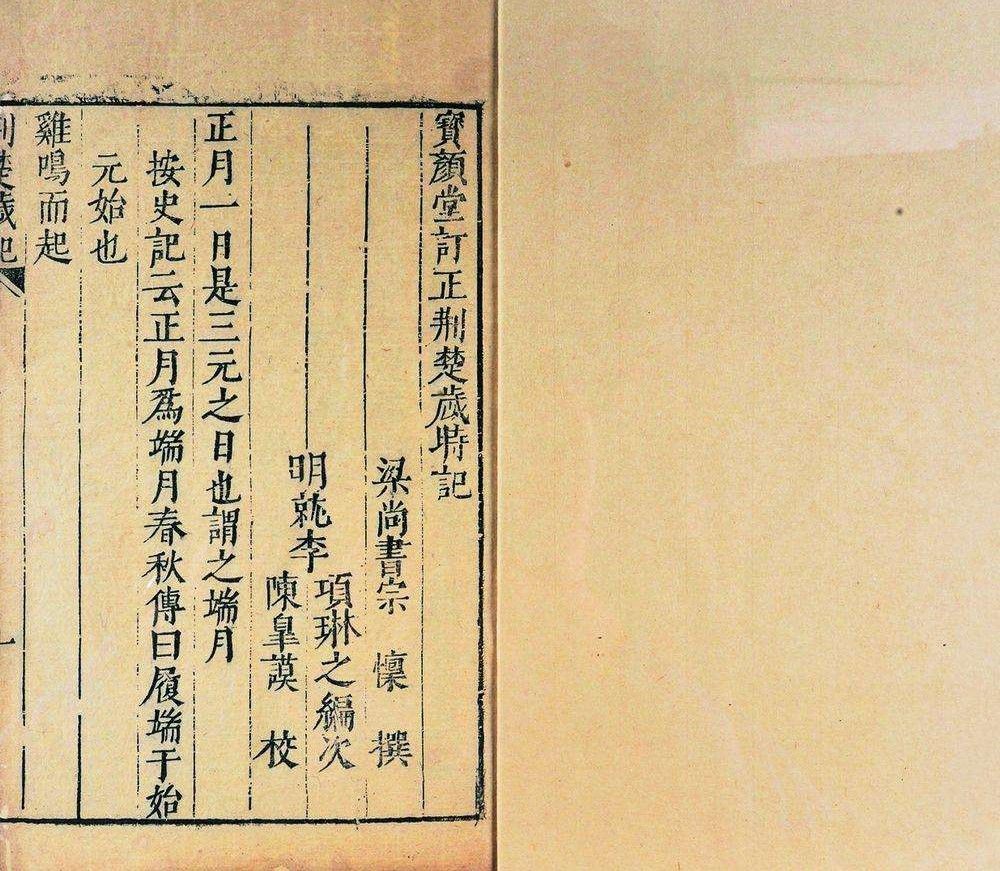 寳顔堂訂正荆楚歲時記
梁尚書宗 懔 撰
明就李
項琳之編次
陳皐謨 校
正月一日是三元之日也謂之端月
按史記云正月爲端月春秋傳曰履端于始
元始也
雞鳴而起
荆楚歲記
一